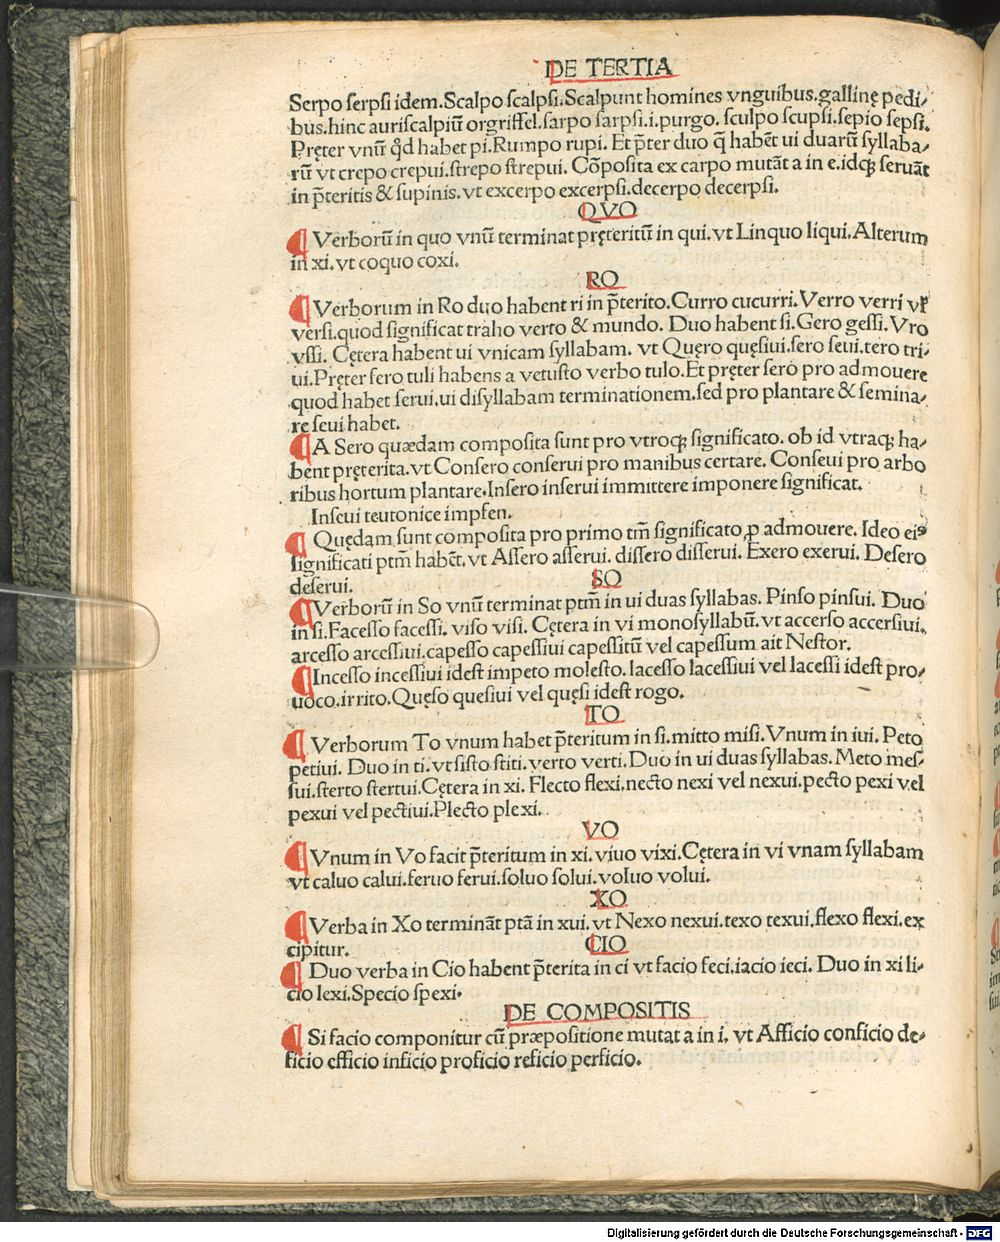 DE TERTIA
Serpo serpsi idem. Scalpo scalpsi. Scalpunt homines vnguibus. gallinę pedi/
bus. hinc auriscalpiũ orgriffel. sarpo sarpsi. i. purgo. sculpo scupsi. sepio sepsi.
Pręter vnũ qđ habet pi. Rumpo rupi. Et p̃ter duo q̃ habẽt ui duarũ syllaba/
rũ vt crepo crepui. strepo strepui. Cõposita ex carpo mutãt a in e. idqꝫ seruãt
in p̃teritis & supinis. vt excerpo excerpsi. decerpo decerpsi.
QVO
¶ Verborũ in quo vnũ terminat pręteritũ in qui. vt Linquo liqui. Alterum
in xi. vt coquo coxi.
RO
¶ Verborum in Ro duo habent ri in p̃terito. Curro cucurri. Verro verri vł
versi. quod significat traho verto & mundo. Duo habent si. Gero gessi. Vro
vssi. Cętera habent ui vnicam syllabam. vt Quęro quęsiui. sero seui. tero tri/
ui. Pręter fero tuli habens a vetusto verbo tulo. Et pręter sero pro admouere
quod habet serui. ui disyllabam terminationem. sed pro plantare & semina/
re seui habet.
¶ A Sero quædam composita sunt pro vtroqꝫ significato. ob id vtraqꝫ ha/
bent pręterita. vt Consero conserui pro manibus certare. Conseui pro arbo
ribus hortum plantare. Insero inserui immittere imponere significat.
Inseui teutonice impfen.
¶ Quędam sunt composita pro primo tm̃ significato ꝓ admouere. Ideo eiꝰ
significati ptm̃ habẽt. vt Assero asserui. dissero disserui. Exero exerui. Desero
deserui.
SO
¶ Verborũ in So vnũ terminat ptm̃ in ui duas syllabas. Pinso pinsui. Duo
in si. Facesso facessi. viso visi. Cętera in vi monosyllabũ. vt accerso accersiui.
arcesso arcessiui. capesso capessiui capessitũ vel capessum ait Nestor.
¶ Incesso incessiui idest impeto molesto. lacesso lacessiui vel lacessi idest pro/
uoco. irrito. Quęso quesiui vel quęsi idest rogo.
TO
¶ Verborum To vnum habet p̃teritum in si. mitto misi. Vnum in iui. Peto
petiui. Duo in ti. vt sisto stiti. verto verti. Duo in ui duas syllabas. Meto mes/
sui. sterto stertui. Cętera in xi. Flecto flexi. necto nexi vel nexui. pecto pexi vel
pexui vel pectiui. Plecto plexi.
VO
¶ Vnum in Vo facit p̃teritum in xi. viuo vixi. Cętera in vi vnam syllabam
vt caluo calui. feruo ferui. soluo solui. voluo volui.
XO
¶ Verba in Xo terminãt ptã in xui. vt Nexo nexui. texo texui. flexo flexi. ex
cipitur.
CIO
¶ Duo verba in Cio habent p̃terita in ci vt facio feci. iacio ieci. Duo in xi li/
cio lexi. Specio spexi.
DE COMPOSITIS
¶ Si facio componitur cũ præpositione mutat a in i. vt Afficio conficio de/
ficio efficio inficio proficio reficio perficio.
Digitalisierung gefördert durch die Deutsche Forschungsgemeinschaft - DFG